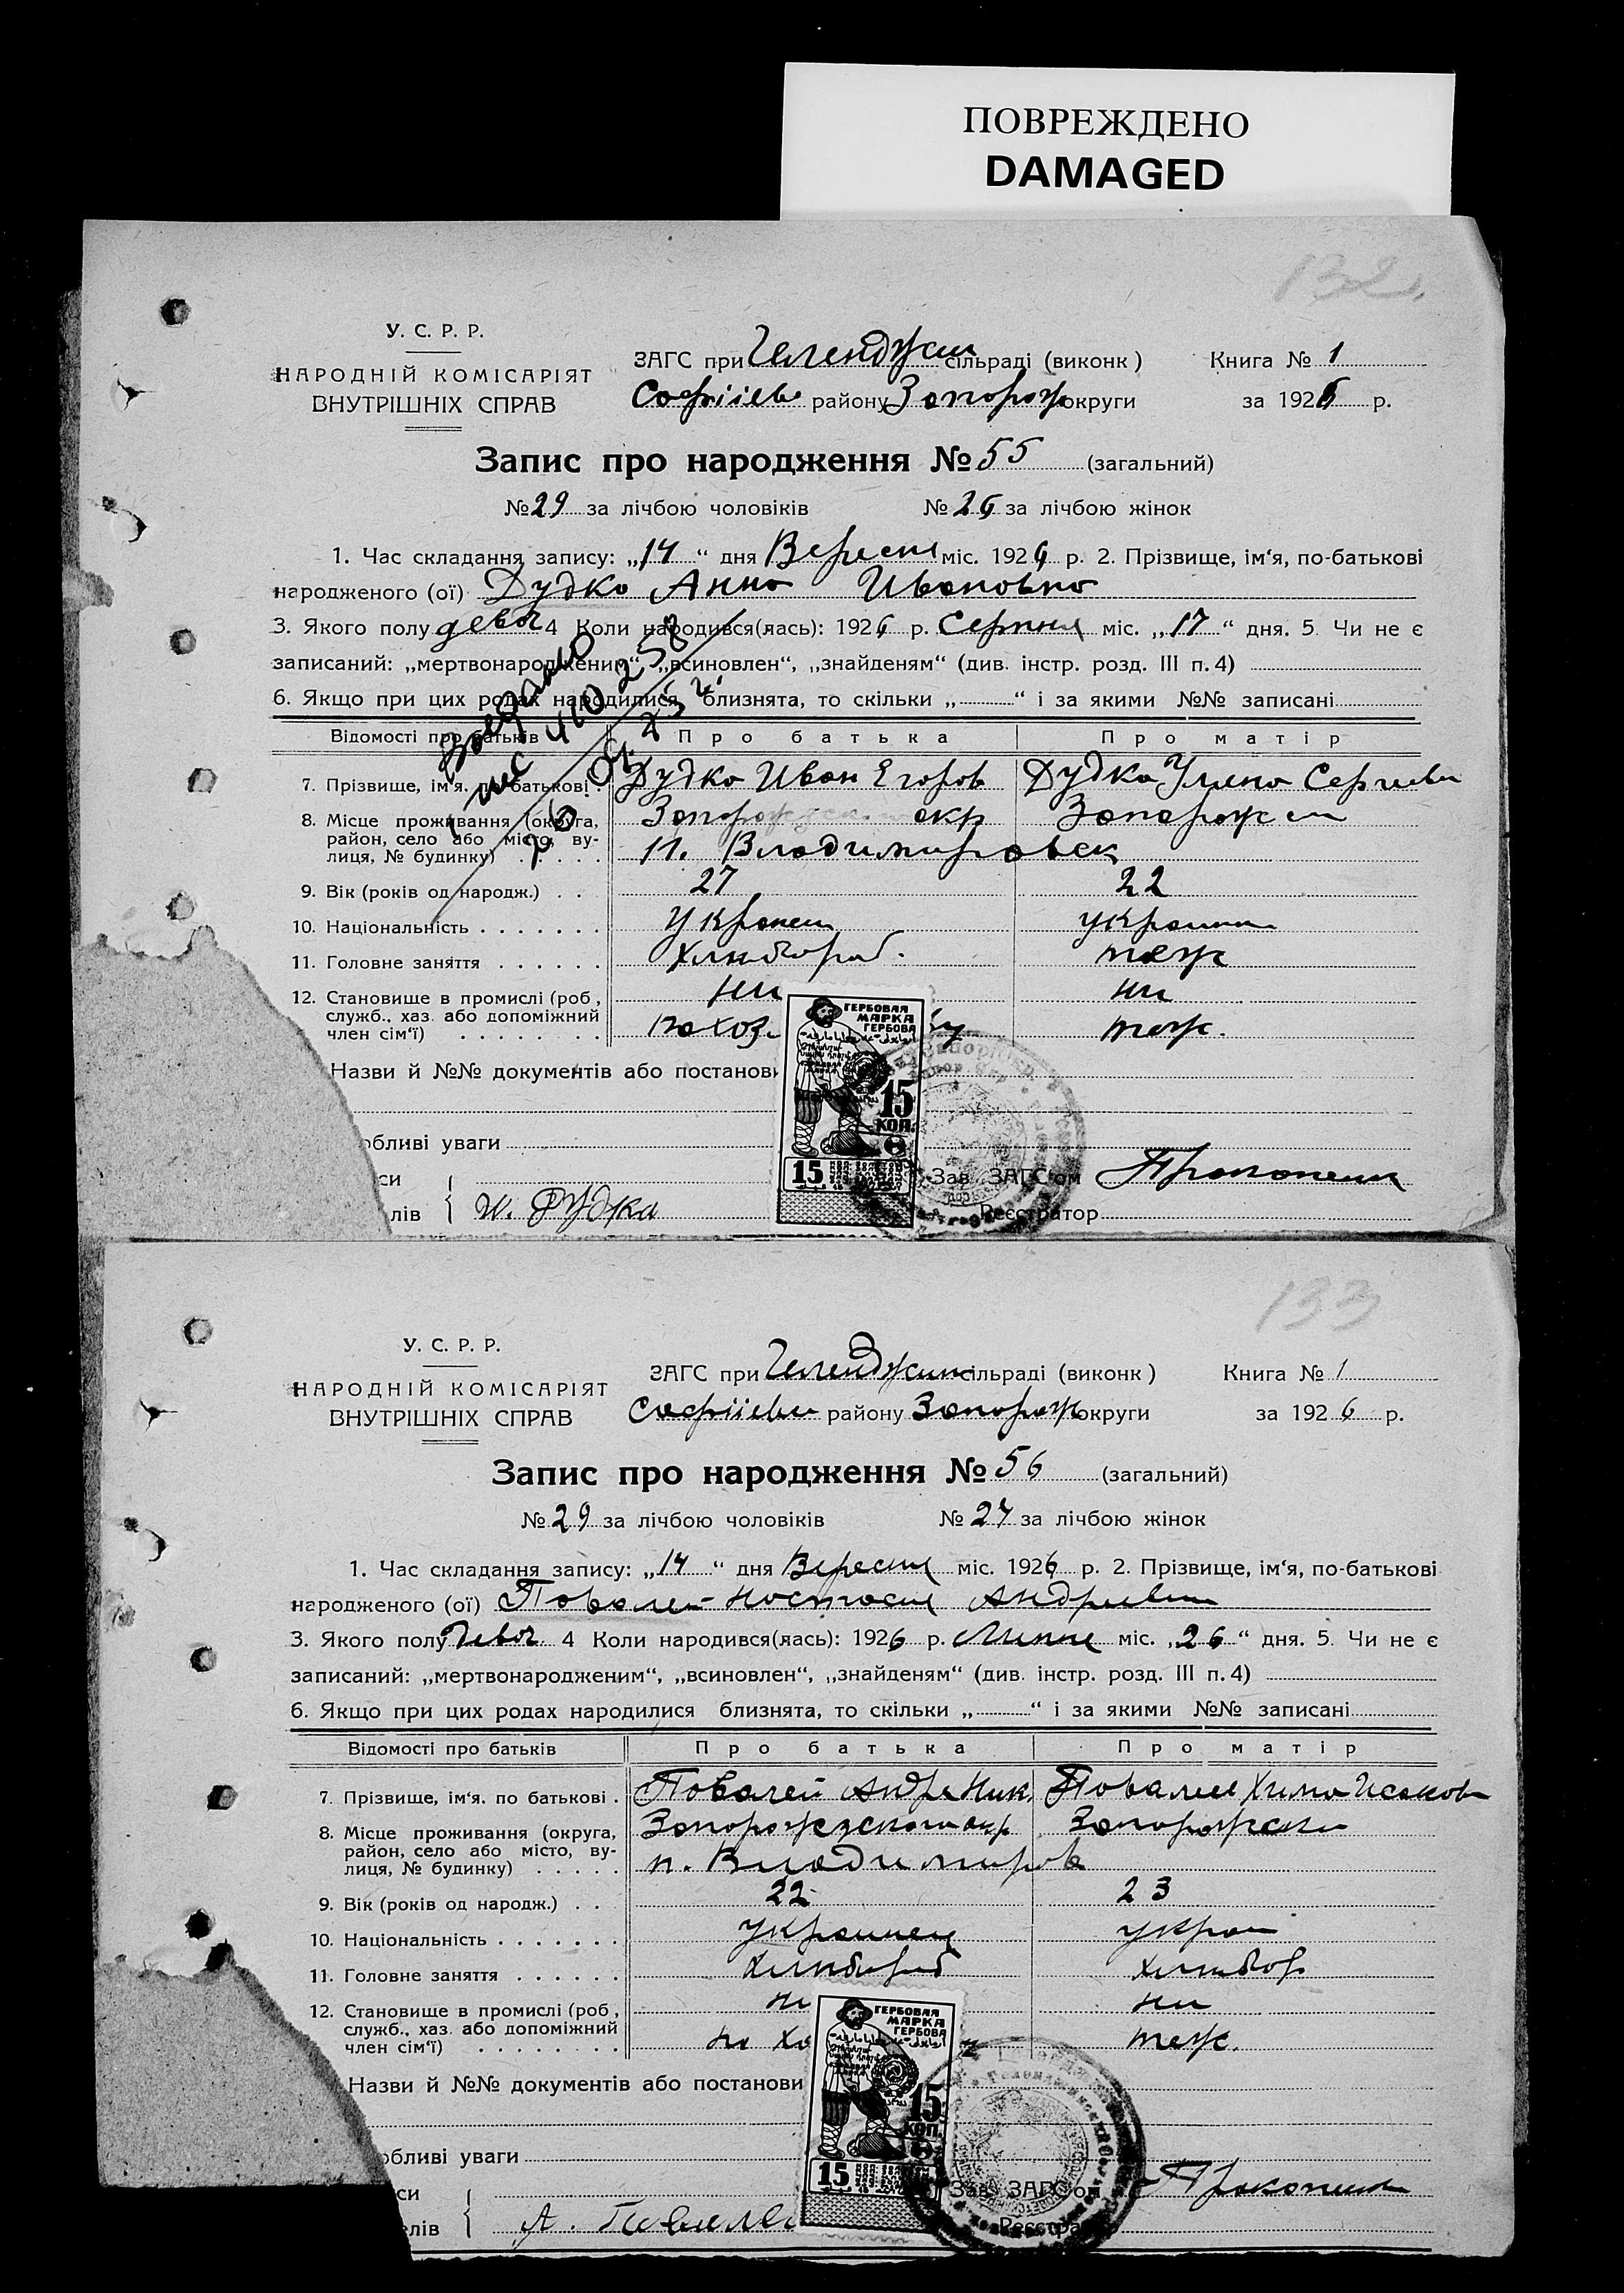 ПОВРЕЖДЕНО
DAMAGED
132.
У. С. Р. Р.
НАРОДНІЙ КОМІСАРІЯТ
ВНУТРІШНІХ СПРАВ
ЗАГС при сільраді (виконк) Книга № 1
Софіієв району Запорож округи за 1926 р.
Запис про народження № 55 (загальний)
№ 29 за лічбою чоловіків № 26 за лічбою жінок
1. Час складання запису: „14“ дня Вересня міс. 1926 р. 2. Прізвище, ім‘я, по-батькові
народженого (ої) Дудко Анна Ивановна
3. Якого полу девоч 4 Коли народився(лась): 1926 р. Серпня міс. „17“ дня. 5. Чи не є
записаний: „мертвонародженим“, „всиновлен“, „знайденям“ (див. інстр. розд. III п. 4)
6. Якщо при цих родах народилися близнята, то скільки „ “ і за якими №№ записані
Відомості про батьків Про батька Про матір
7. Прізвище, ім‘я. по батькові Дудко Иван Егоров Дудка Улена Сергиевн
8. Місце проживання (округа, район, село або місто, вулиця, № будинку) Запорожск окр Запорож
п. Владимировск
9. Вік (років од народж.) 27 22
10. Національність
11. Головне заняття Хлибороб. тож
12. Становище в промислі (роб, служб., хаз. або допоміжний член сім‘ї) ни ни
тож.
Назви й №№ документів або постанови
обливі уваги
си
лів И. Дудка
ГЕРБОВАЯ
МАРКА
ГЕРБОВА
15
КОП.
15
Зав. ЗАГС‘ом
Реєстратор
133
У. С. Р. Р.
НАРОДНІЙ КОМІСАРІЯТ
ВНУТРІШНІХ СПРАВ
ЗАГС при сільраді (виконк) Книга № 1
Софіієв району Запорож округи за 1926 р.
Запис про народження № 56 (загальний)
№ 29 за лічбою чоловіків № 27 за лічбою жінок
1. Час складання запису: „14“ дня Вересня міс. 1926 р. 2. Прізвище, ім‘я, по-батькові
народженого (ої) Повалей Настасия Андриевн
3. Якого полу девоч 4 Коли народився(лась): 1926 р. Липня міс. „26“ дня. 5. Чи не є
записаний: „мертвонародженим“, „всиновлен“, „знайденям“ (див. інстр. розд. III п. 4)
6. Якщо при цих родах народилися близнята, то скільки „ “ і за якими №№ записані
Відомості про батьків Про батька Про матір
7. Прізвище, ім‘я. по батькові Повалей Андр Ник. Повалей Хима Исаков
8. Місце проживання (округа, район, село або місто, вулиця, № будинку) окр
п. Владимиров
9. Вік (років од народж.) 22 23
10. Національність украинец украи
11. Головне заняття Хлибороб хлибор
12. Становище в промислі (роб, служб., хаз. або допоміжний член сім‘ї) ни ни
тож.
Назви й №№ документів або постанови
обливі уваги
си
елів А. Повалей
ГЕРБОВАЯ
МАРКА
ГЕРБОВА
15
КОП.
15
Зав. ЗАГС‘ом
Реєстратор